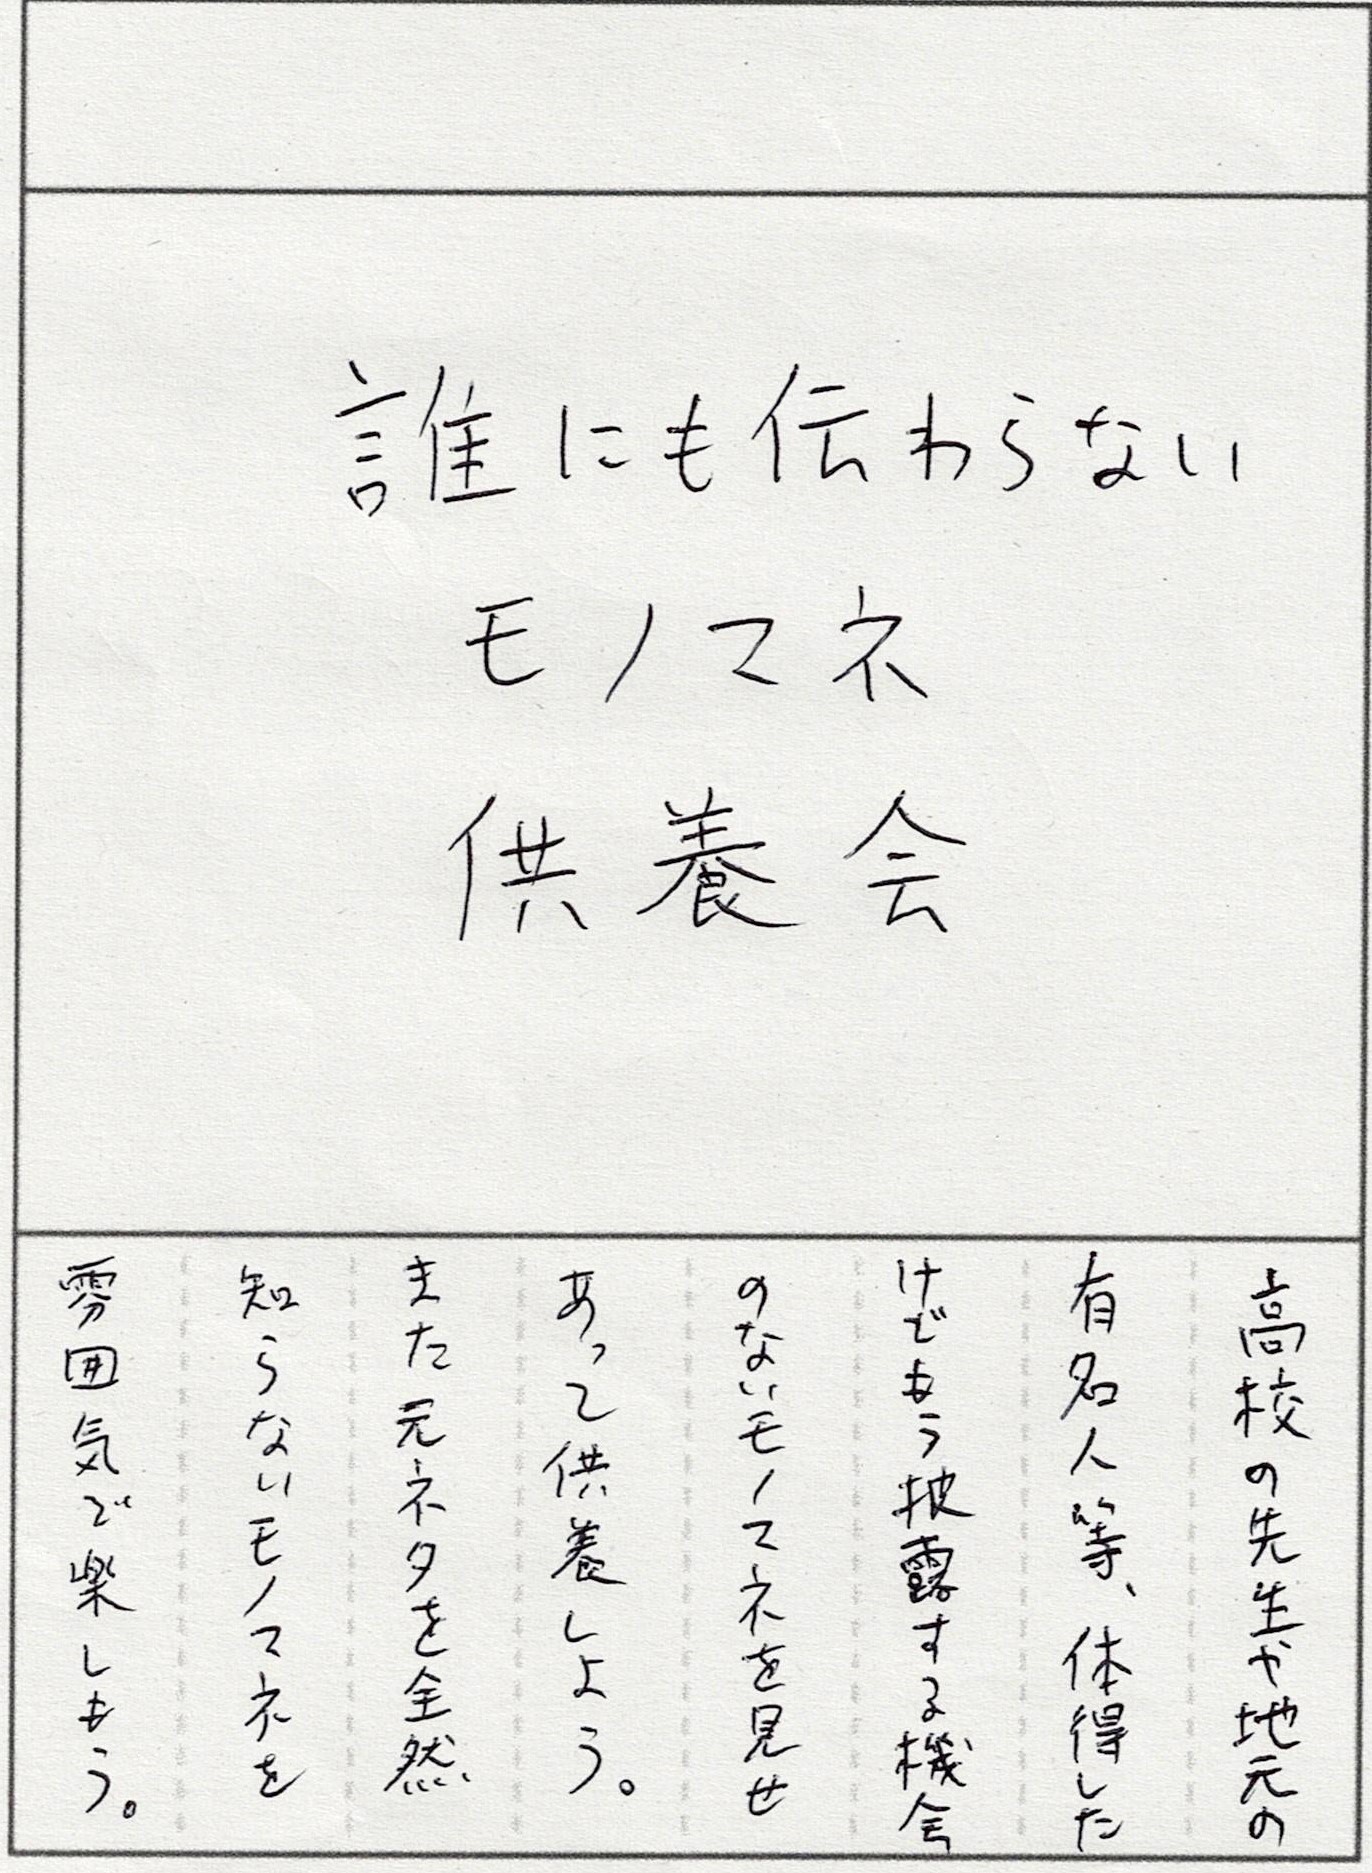 誰にも伝わらない
モノマネ
供養会
高校の先生や地元の
有名人等、体得した
けどもう披露する機会
のないモノマネを見せ
あって供養しよう。
また元ネタを全然
知らないモノマネを
雰囲気で楽しもう。